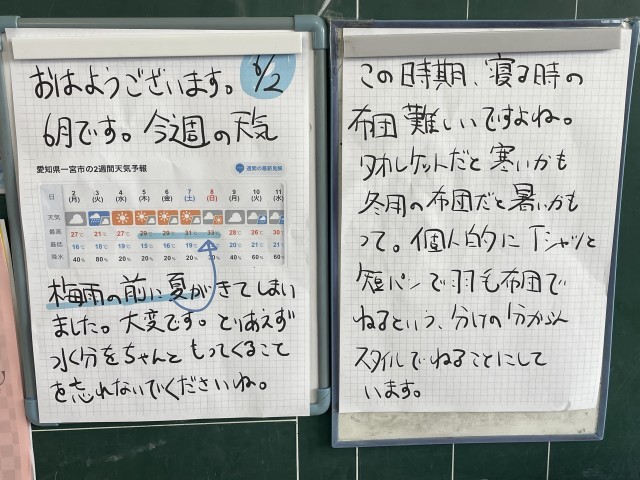 おはようございます。
6/2
6月です。今週の天気
愛知県一宮市の2週間天気予報
週間の最新見解
日 2(月) 3(火) 4(水) 5(木) 6(金) 7(土) 8(日) 9(月) 10(火) 11(水)
天気
最高 27℃ 21℃ 27℃ 29℃ 29℃ 31℃ 33℃ 28℃ 26℃ 30℃
最低 16℃ 18℃ 19℃
降水 40% 80% 20% 20%
梅雨の前に夏がきてしまい
ました。大変です。とりあえず
水分をちゃんともってくること
を忘れないでくださいね。
この時期、寝る時の
布団難しいですよね。
タオルケットだと寒いかも
冬用の布団だと暑いかも
って。個人的にTシャツと
短パンで羽毛布団で
ねるという、分けの分からん
スタイルでねることにして
います。